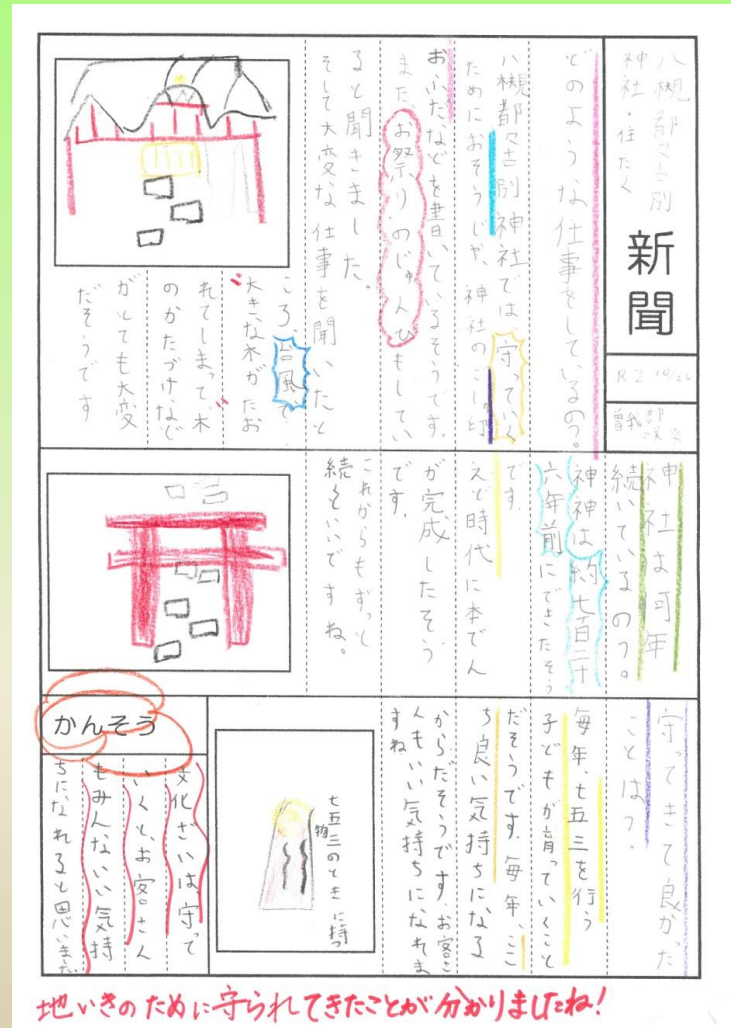 八槻都々古別
神社・住たく
新聞
R2 10/26
どのような仕事をしているの？
八槻都々古別神社では守っていく
ためにおそうじや、神社の
おふだなどを書いているそうです。
また、お祭りのじゅんびもしてい
ると聞きました。
そして大変な仕事を聞いたと
ころ、台風で
大きな木がたお
れてしまって木
のかたづけなど
がとても大変
だそうです
神社は何年
続いているの？。
神神は約七百二十
六年前にできたそう
です。
えど時代に本でん
が完成したそう
です。
これからもずっと
続くといいですね。
守ってきて良かった
ことは？
毎年、七五三を行う
子どもが育っていくこと
だそうです。毎年、ここ
ち良い気持ちになる
からだそうです。お客さ
んもいい気持ちになれま
すね
七五三のときに持つ
物
かんそう
文化ざいは、守って
いくと、お客さん
もみんないい気持
ちになれると思いました
地いきのために守られてきたことが分かりましたね!